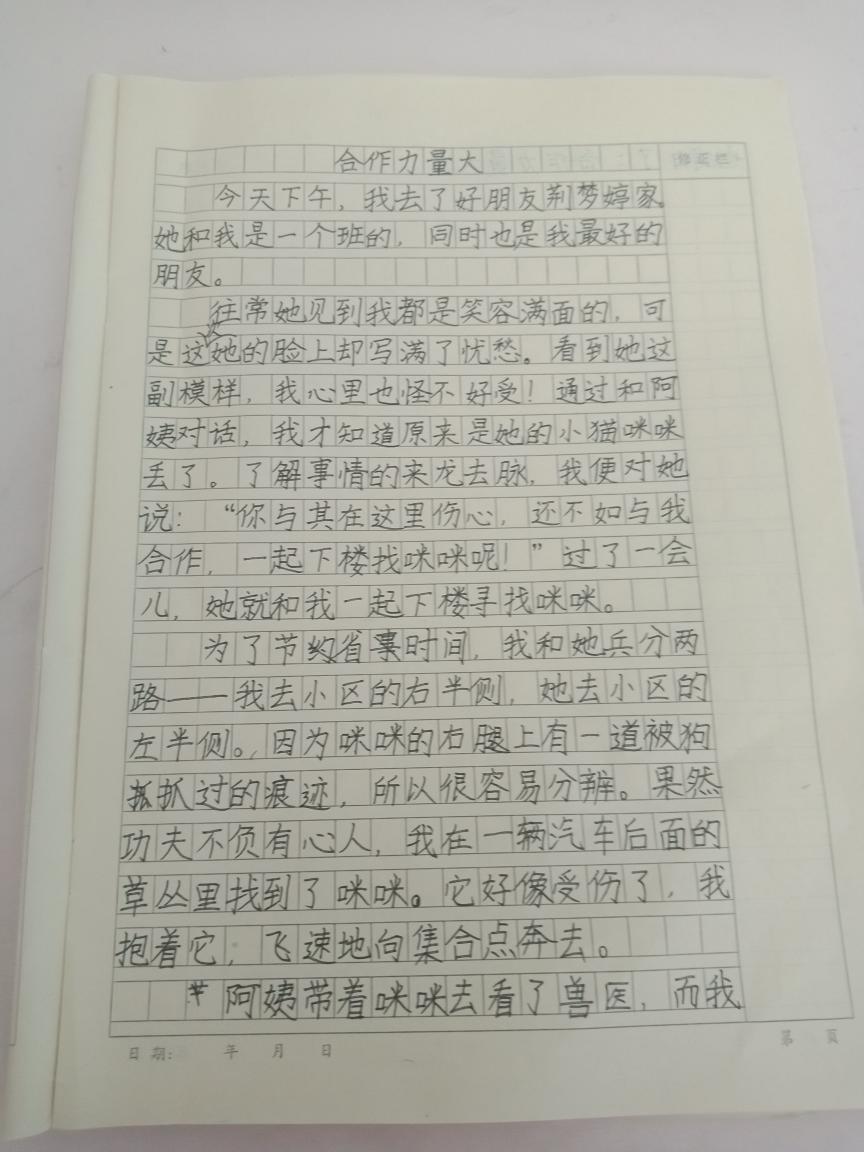 合作力量大
今天下午，我去了好朋友荆梦婷家。
她和我是一个班的，同时也是我最好的
朋友。
往常她见到我都是笑容满面的，可
是这次她的脸上却写满了忧愁。看到她这
副模样，我心里也怪不好受！通过和阿
姨对话，我才知道原来是她的小猫咪咪
丢了。了解事情的来龙去脉，我便对她
说：“你与其在这里伤心，还不如与我
合作，一起下楼找咪咪呢！”过了一会
儿，她就和我一起下楼寻找咪咪。
为了节约省事时间，我和她兵分两
路——我去小区的右半侧，她去小区的
左半侧。因为咪咪的右腿上有一道被狗
抓过的痕迹，所以很容易分辨。果然
功夫不负有心人，我在一辆汽车后面的
草丛里找到了咪咪。它好像受伤了，我
抱着它，飞速地向集合点奔去。
阿姨带着咪咪去看了兽医，而我
日期： 年 月 日
第 页